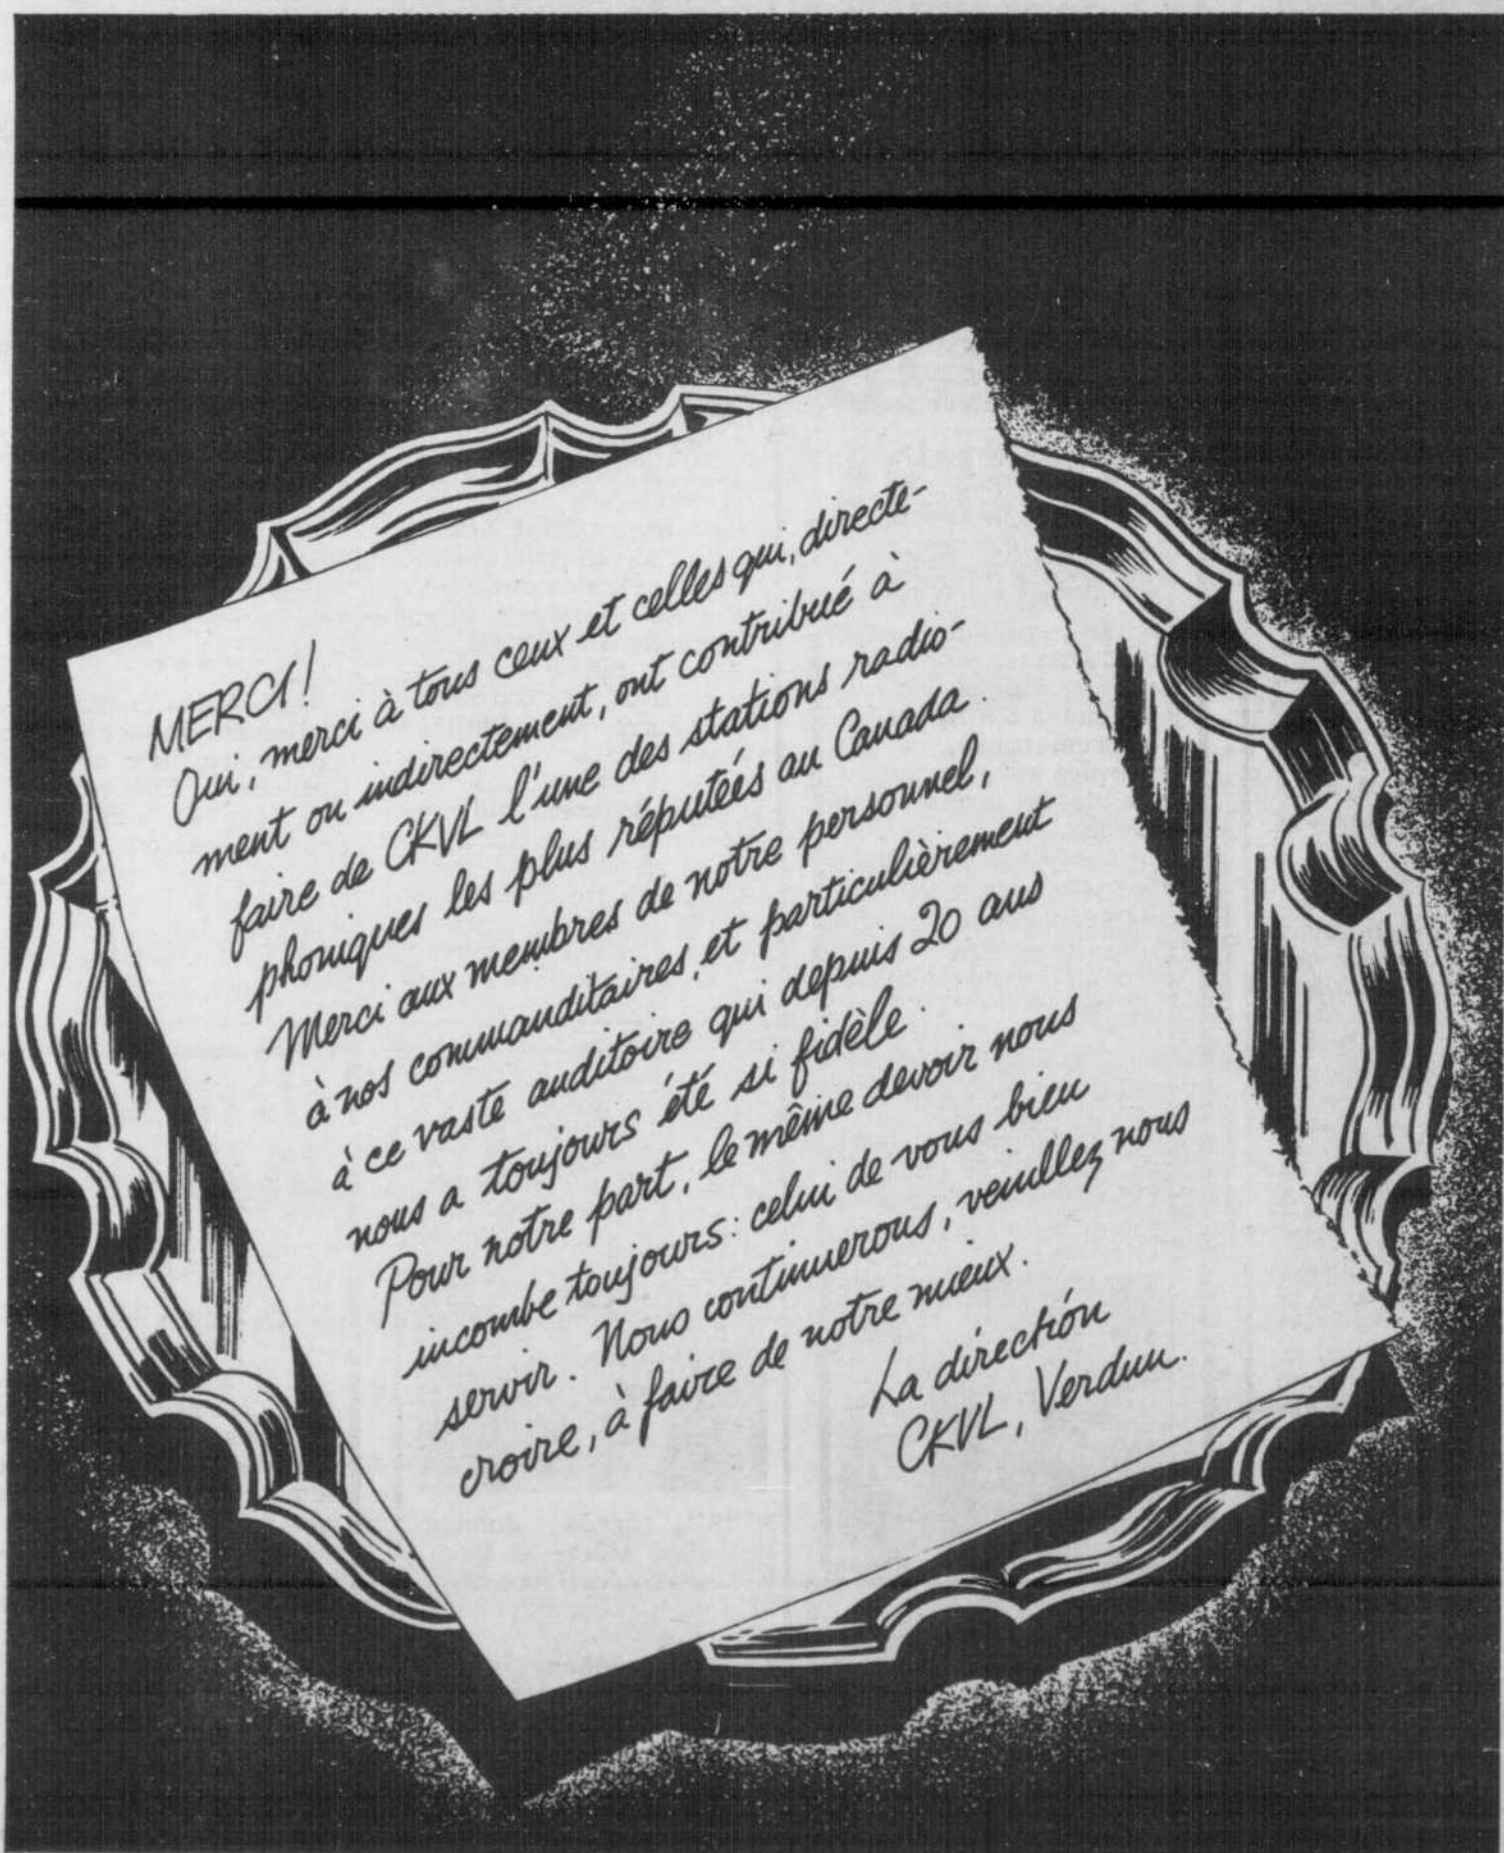 MERCI!
Oui, merci à tous ceux et celles qui, directe-
ment ou indirectement, ont contribué à
faire de CKVL l'une des stations radio-
phoniques les plus réputées au Canada.
Merci aux membres de notre personnel,
à nos commanditaires, et particulièrement
à ce vaste auditoire qui depuis 20 ans
nous a toujours été si fidèle.
Pour notre part, le même devoir nous
incombe toujours: celui de vous bien
servir. Nous continuerons, veuillez nous
croire, à faire de notre mieux.
La direction
CKVL, Verdun.